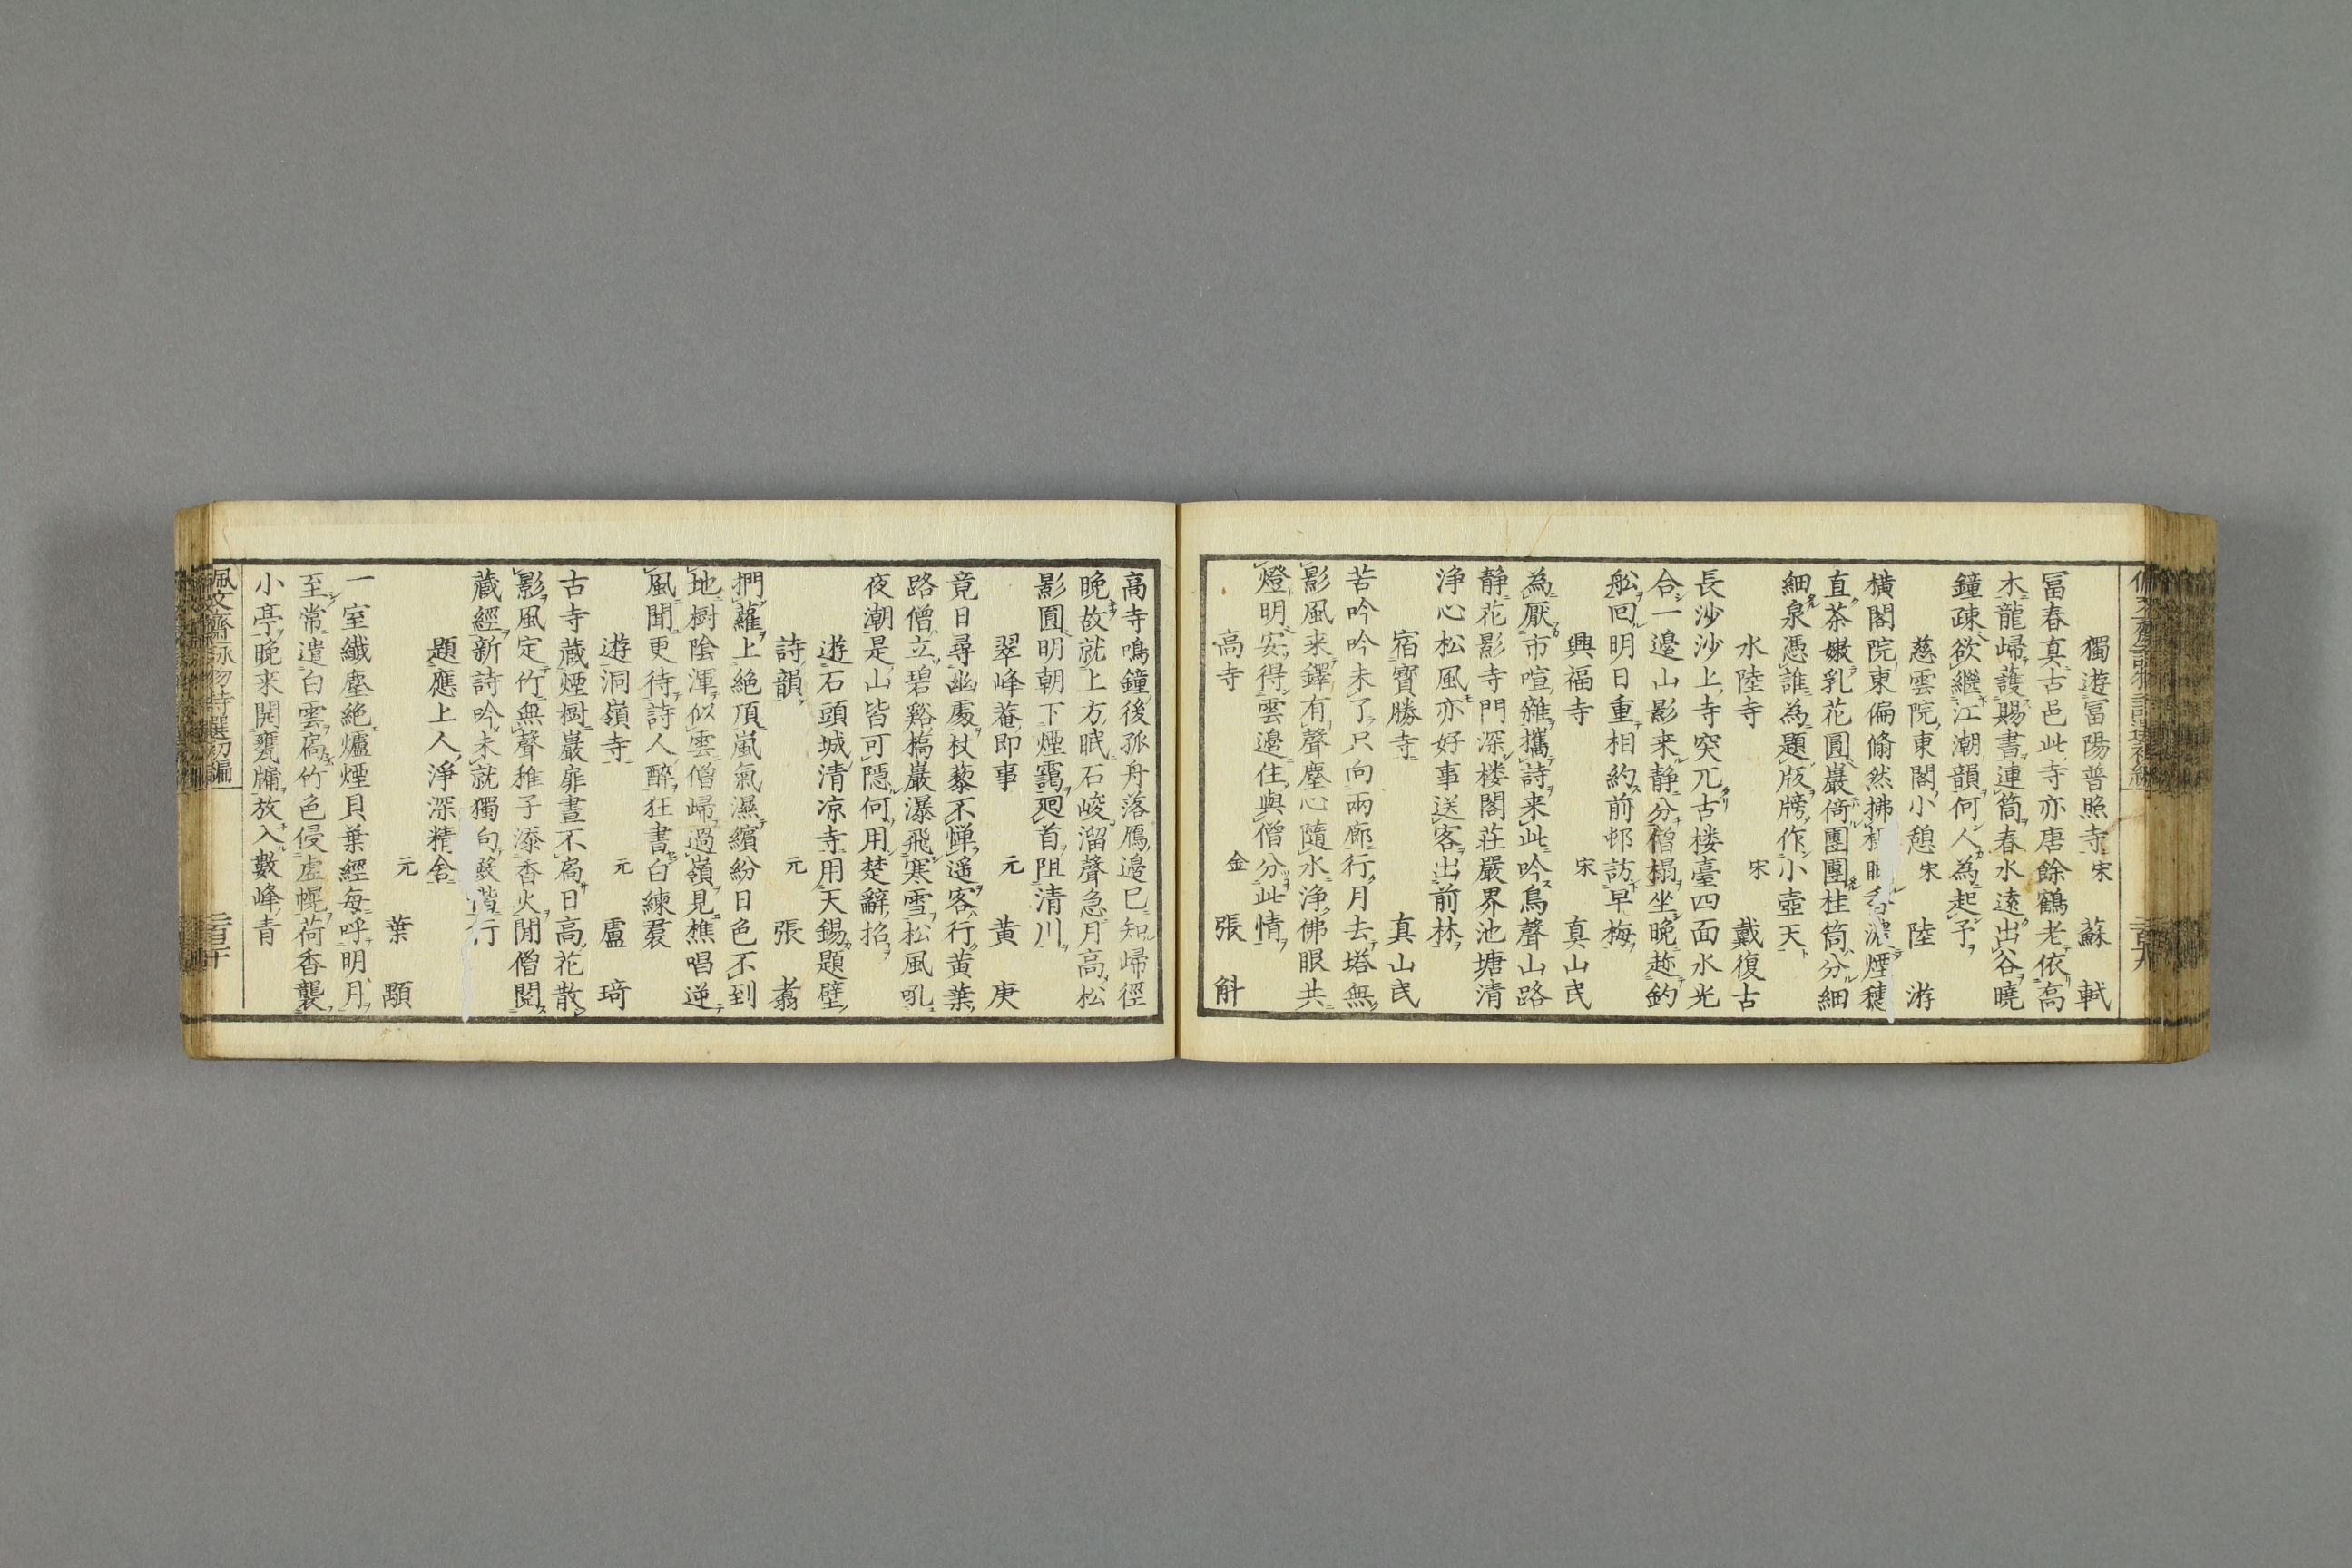 獨遊冨陽普照寺 宋 蘇 軾
冨春真古邑此寺亦唐餘鶴老依高
木龍歸護賜書連筒春水遠出谷曉
鐘疎欲繼江潮韻何人為起予
慈雲院東閣小憩 宋 陸 游
橫閣院東偏翛然拂香濃煙穗
直茶嫩乳花圓巖倚團團桂筒分細
細泉憑誰為題版牓作小壺天
水陸寺 宋 戴復古
長沙沙上寺突兀古楼臺四面水光
合一邊山影来静分僧榻坐晚趂釣
舩回明日重相約前邨訪早梅
興福寺 宋 真山民
為厭市喧雜攜詩来此吟鳥聲山路
静花影寺門深楼閣荘嚴界池塘清
浄心松風亦好事送客出前林
宿寶勝寺 真山民
苦吟吟未了只向兩廊行月去塔無
影風来鐸有聲塵心隨水浄佛眼共
燈明安得雲邊住與僧分此情
高寺 金 張 斛
高寺鳴鐘後孤舟落鴈邊已知歸徑
晚故就上方眠石峻溜聲急月高松
影圓明朝下煙靄廻首阻清川
翠峰菴即事 元 黃 庚
竟日尋幽處杖藜不憚遥客行黃葉
路僧立碧谿橋巖瀑飛寒雪松風吼
夜潮是山皆可隱何用楚辭招
遊石頭城清凉寺用天錫題壁
詩韻 元 張 翥
捫蘿上絕頂嵐氣濕繽紛日色不到
地樹陰渾似雲僧歸過嶺見樵唱逆
風聞更待詩人醉狂書白練裠
遊洞嶺寺 元 盧 琦
古寺藏煙樹巖扉晝不扃日高花散
影風定竹無聲稚子添香火閒僧閱
藏經新詩吟未就獨向蘚堦行
題應上人淨深精舍
元 葉 顒
一室纖塵絕爐煙貝葉經每呼明月
至常遣白雲扃竹色侵虛幌荷香襲
小亭晚来開甕牖放入數峰青
佩文齋詠物詩選初編 二百十